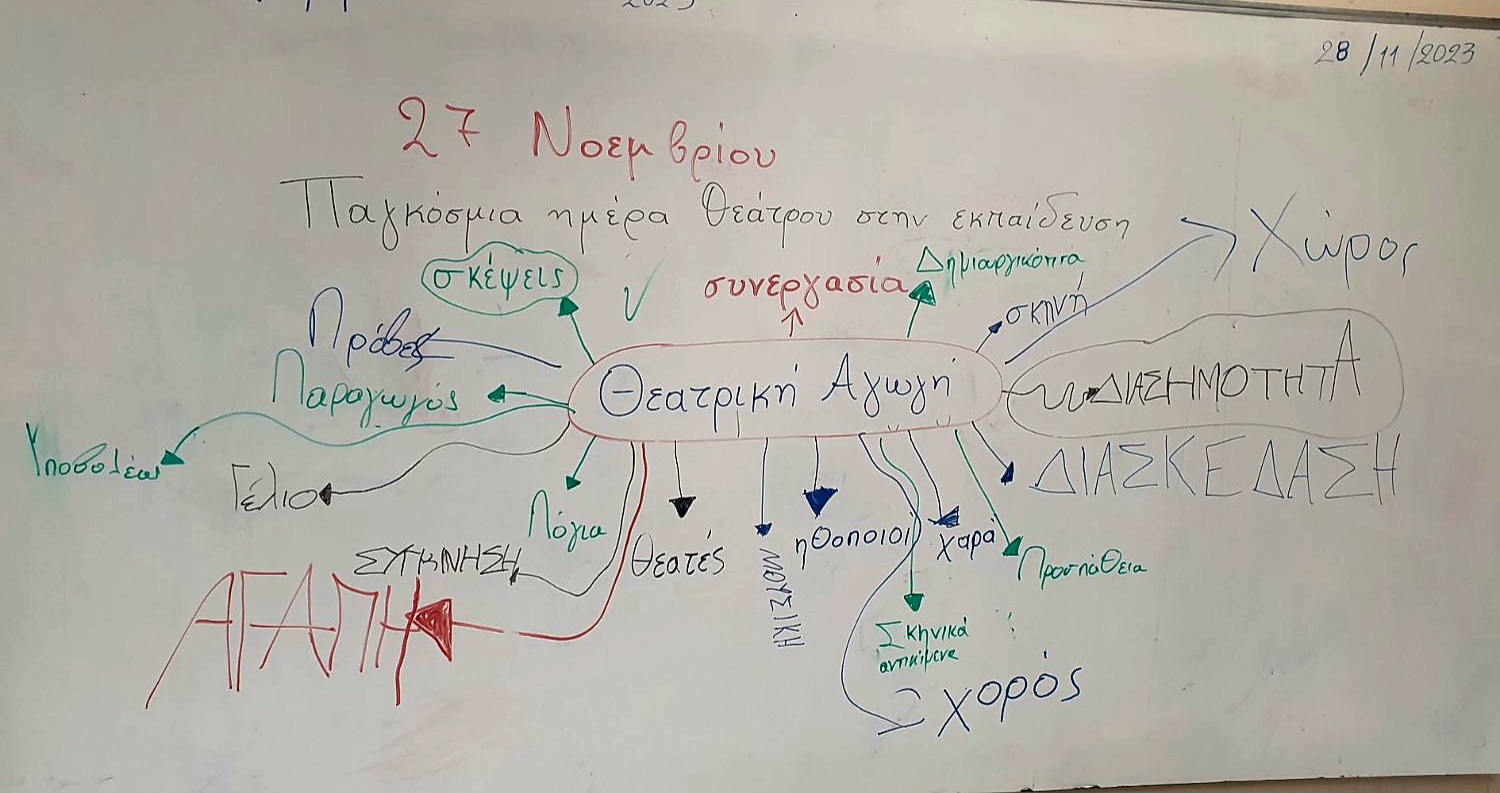 2023
28/11/2023
27 Νοεμβρίου
Παγκόσμια ημέρα Θεάτρου στην εκπαίδευση
σκέψεις
συνεργασία
Δημιαργικότητα
σκηνή
Χώρος
Πρόβες
Παραγωγός
Θεατρική Αγωγή
ΔΙΑΣΗΜΟΤΗΤΑ
Υποβολέας
Γέλιο
Λόγια
Θεατές
ΜΟΥΣΙΚΗ
ηθοποιοί
χαρά
ΔΙΑΣΚΕΔΑΣΗ
Προσπάθεια
ΣΥΓΚΝΗΣΗ
ΑΓΑΠΗ
Σκηνικά
αντικίμενα
χορός